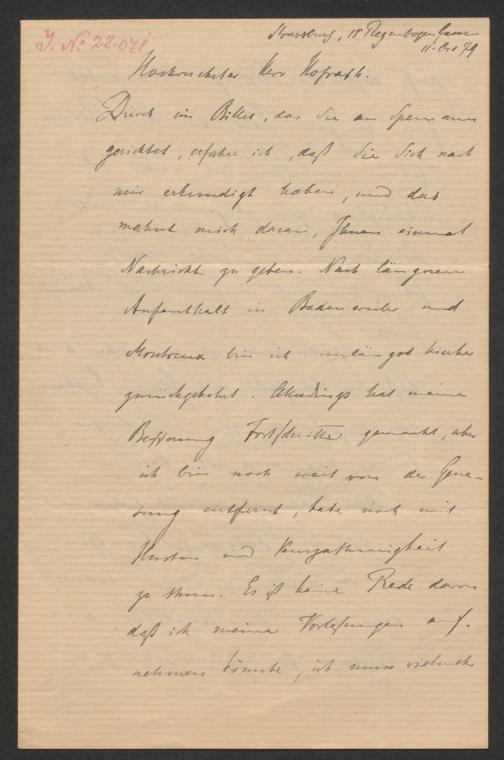 J. № 22.071
Strassburg, 15 Regenbogen Gasse
11. Oct 79
Hochverehrter Herr Hofrath.
Durch ein Billet, das Sie an
gerichtet, erfahre ich, daß Sie Sich nach
mir erkundigt haben, und das
mahnt mich daran, Ihnen einmal
Nachricht zu geben. Nach längerem
Aufenthalt in Badenweiler und
Montreux bin ich unlängst hierher
zurückgekehrt. Allerdings hat meine
Besserung Fortschritte gemacht, aber
ich bin noch weit von der Gene-
sung entfernt, habe noch mit
Husten und Kurzathmigkeit
zu thun. Es ist keine Rede davon
daß ich meine Vorlesungen auf-
nehmen könnte, ich muss vielmehr